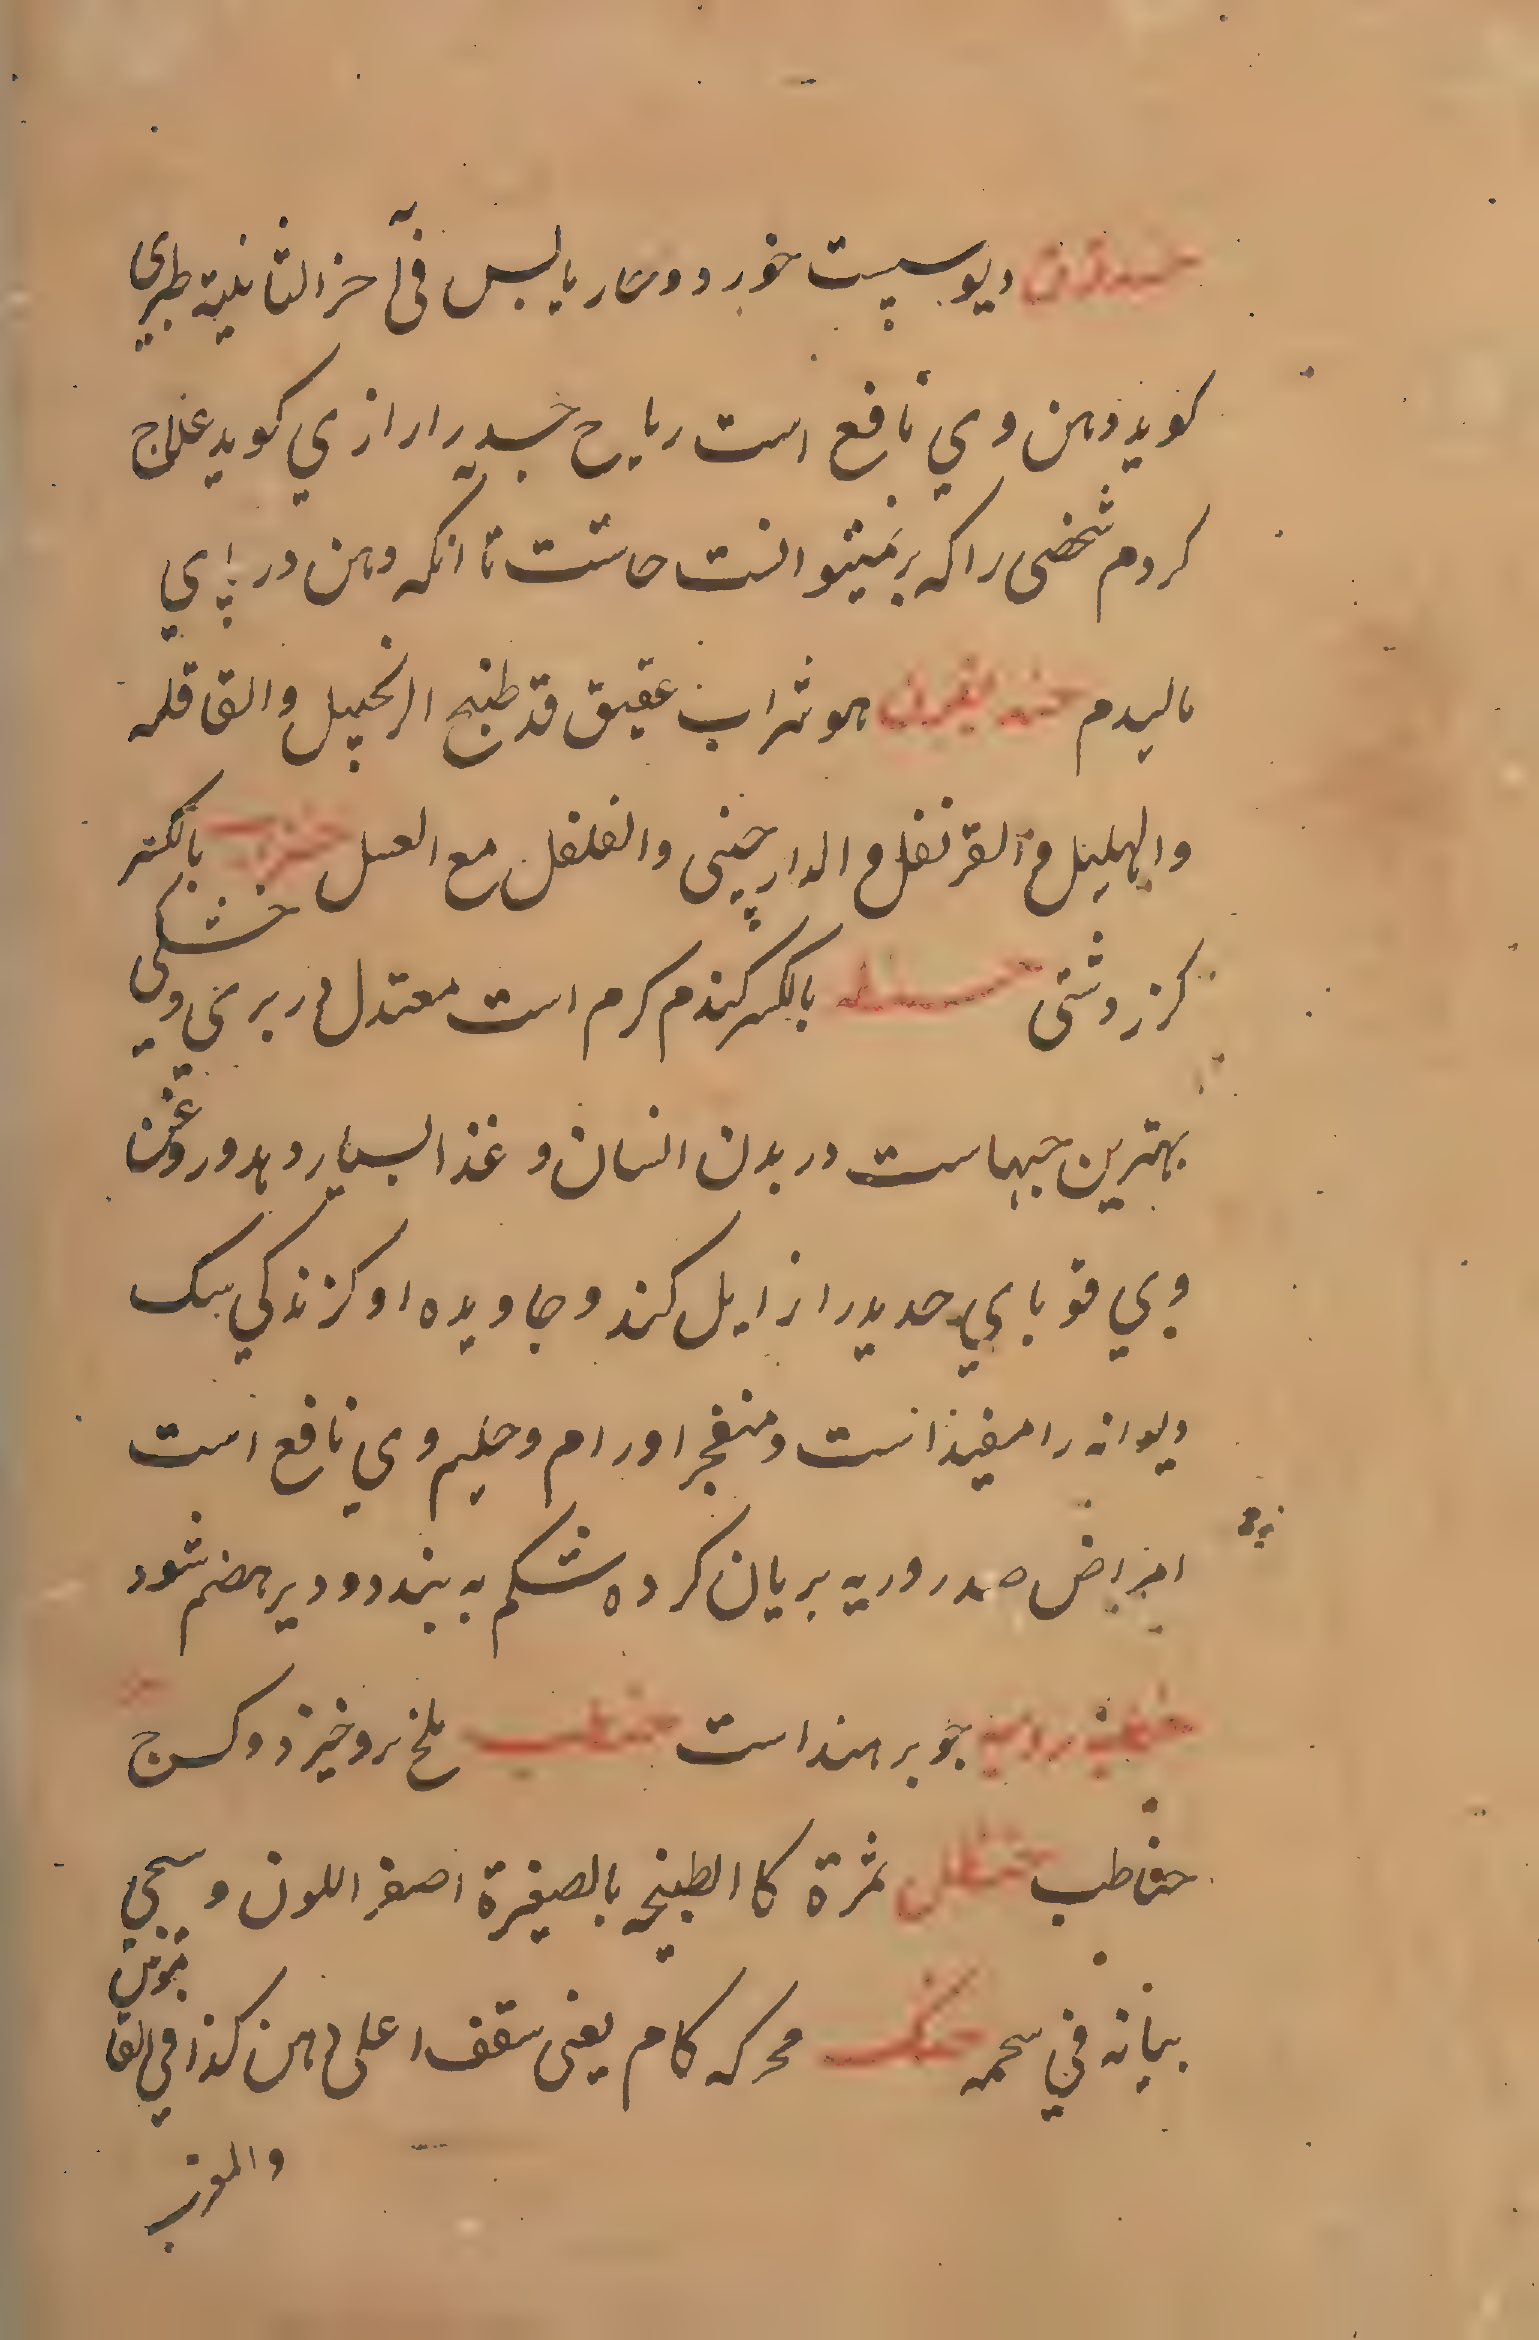 حندقوق دیوسپست خورد و حار یابس فی آخر الثانیة طبری
کوید دهن وی نافع است ریاح جسد را رازی کوید علاج
کردم شخصی را که بر نمیتوانست خاست تا انکه دهن در پای
مالیدم هو شراب عتیق قد طبخ الزنجبیل والقاقله
والهلیل و القرنفل و الدارچینی والفلفل مع العسل حنزاب بالکسر
کزر دشتی حنطه بالکسر کندم کرم است معتدل در تری و خشکی
بهترین حبهاست در بدن انسان و غذا بسیار دهد و روغن
وی قوبای حدید را زایل کند و جاویده او کزندکی سک
دیوانه را مفید است و منفجر اورام و حلیم وی نافع است
امراض صدر و ریه بریان کرده شکم به بندد و دیر هضم شود
حنطه رومیه جو برهنه است حنظب ملخ نر و خبزدوک ج
حناطب حنظل ثمرة کالبطیخه الصغیرة اصفر اللون و سیجی
بیانه فی شحمه حنک محرکه کام یعنی سقف اعلی دهن کذا فی القاموس
والمغرب